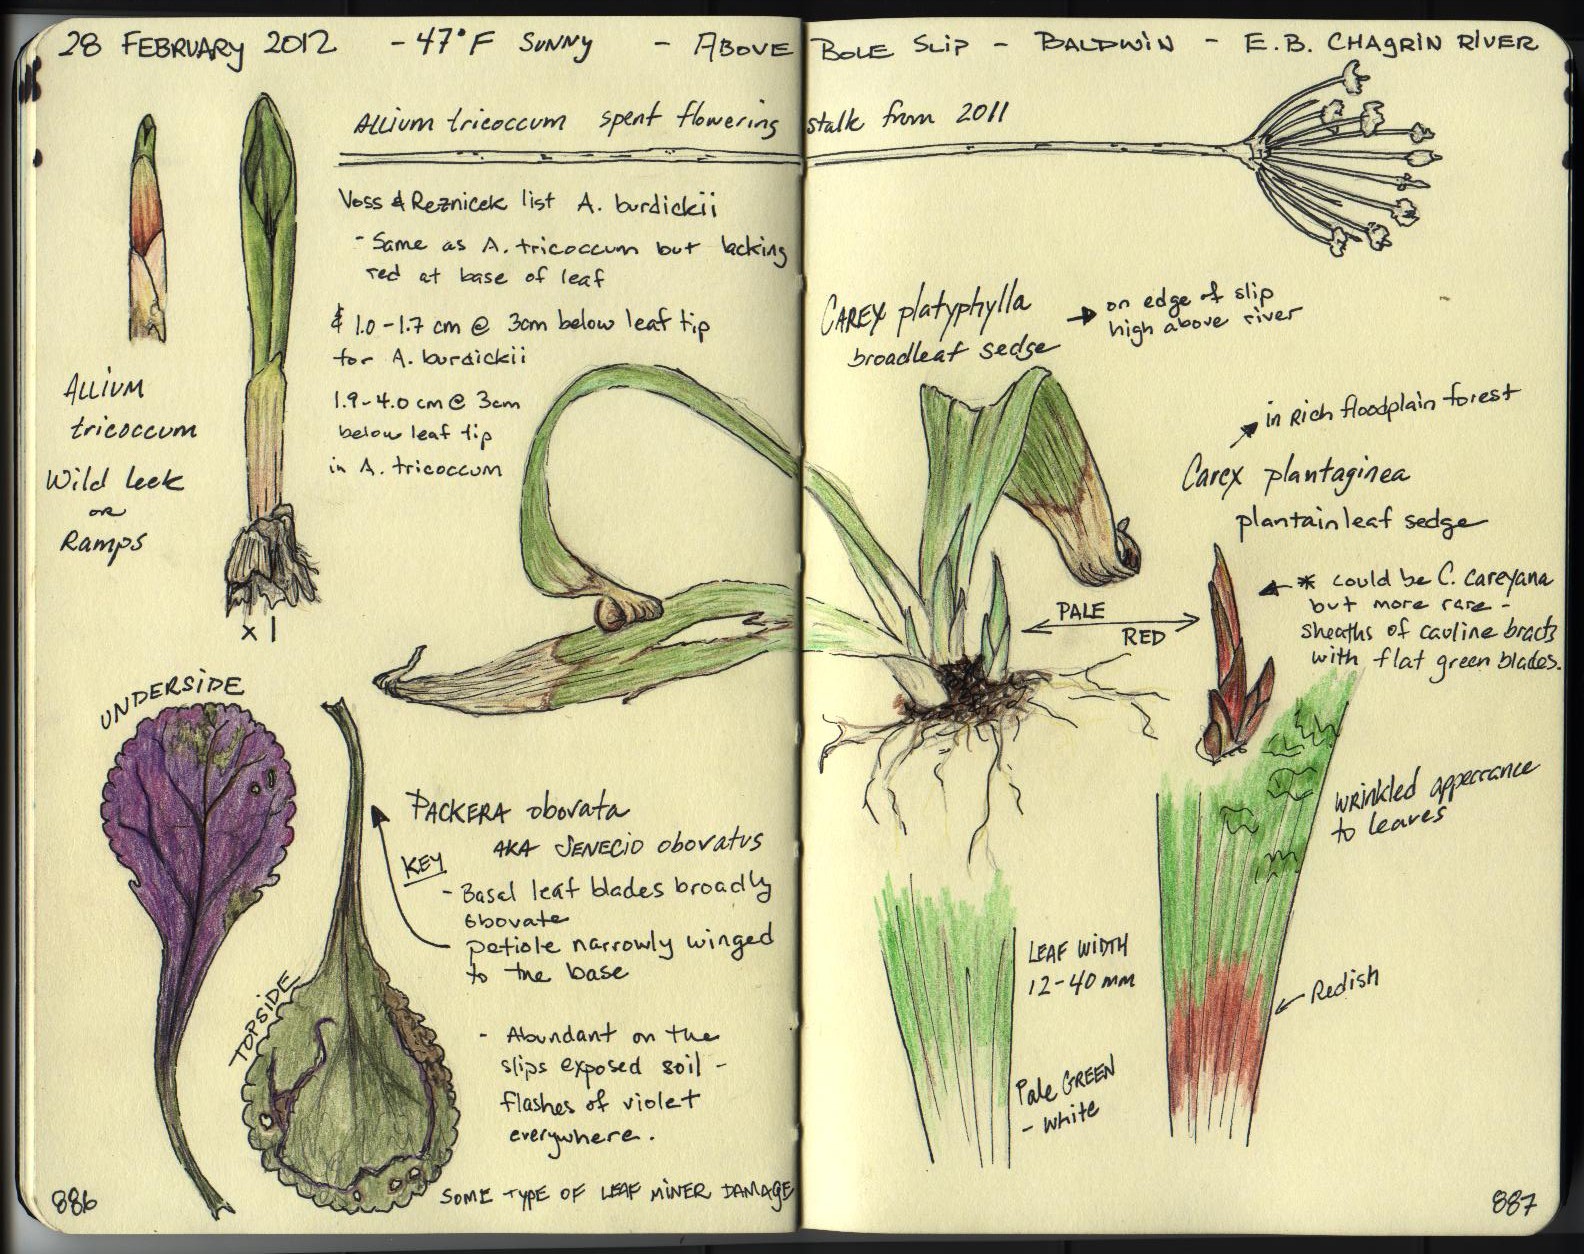 28 FEBRUARY 2012 - 47°F SUNNY - ABOVE BOLE SLIP - BALDWIN - E.B. CHAGRIN RIVER
Allium tricoccum spent flowering stalk from 2011
Voss & Reznicek list A. burdickii
- Same as A. tricoccum but lacking
red at base of leaf
& 1.0-1.7 cm @ 3cm below leaf tip
for A. burdickii
1.9-4.0 cm @ 3cm
below leaf tip
in A. tricoccum
ALLIUM
tricoccum
Wild leek
or
Ramps
x 1
UNDERSIDE
TOPSIDE
PACKERA obovata
AKA SENECIO obovatus
KEY
- Basal leaf blades broadly
obovate
petiole narrowly winged
to the base
- Abundant on the
slips exposed soil -
flashes of violet
everywhere.
SOME TYPE OF LEAF MINER DAMAGE
886
CAREX platyphylla
broadleaf sedge
→ on edge of slip
high above river
in rich floodplain forest
Carex plantaginea
plantainleaf sedge
* could be C. careyana
but more rare -
sheaths of cauline bracts
with flat green blades.
PALE
RED
wrinkled appearance
to leaves
LEAF WIDTH
12-40 mm
Redish
Pale GREEN
- white
887